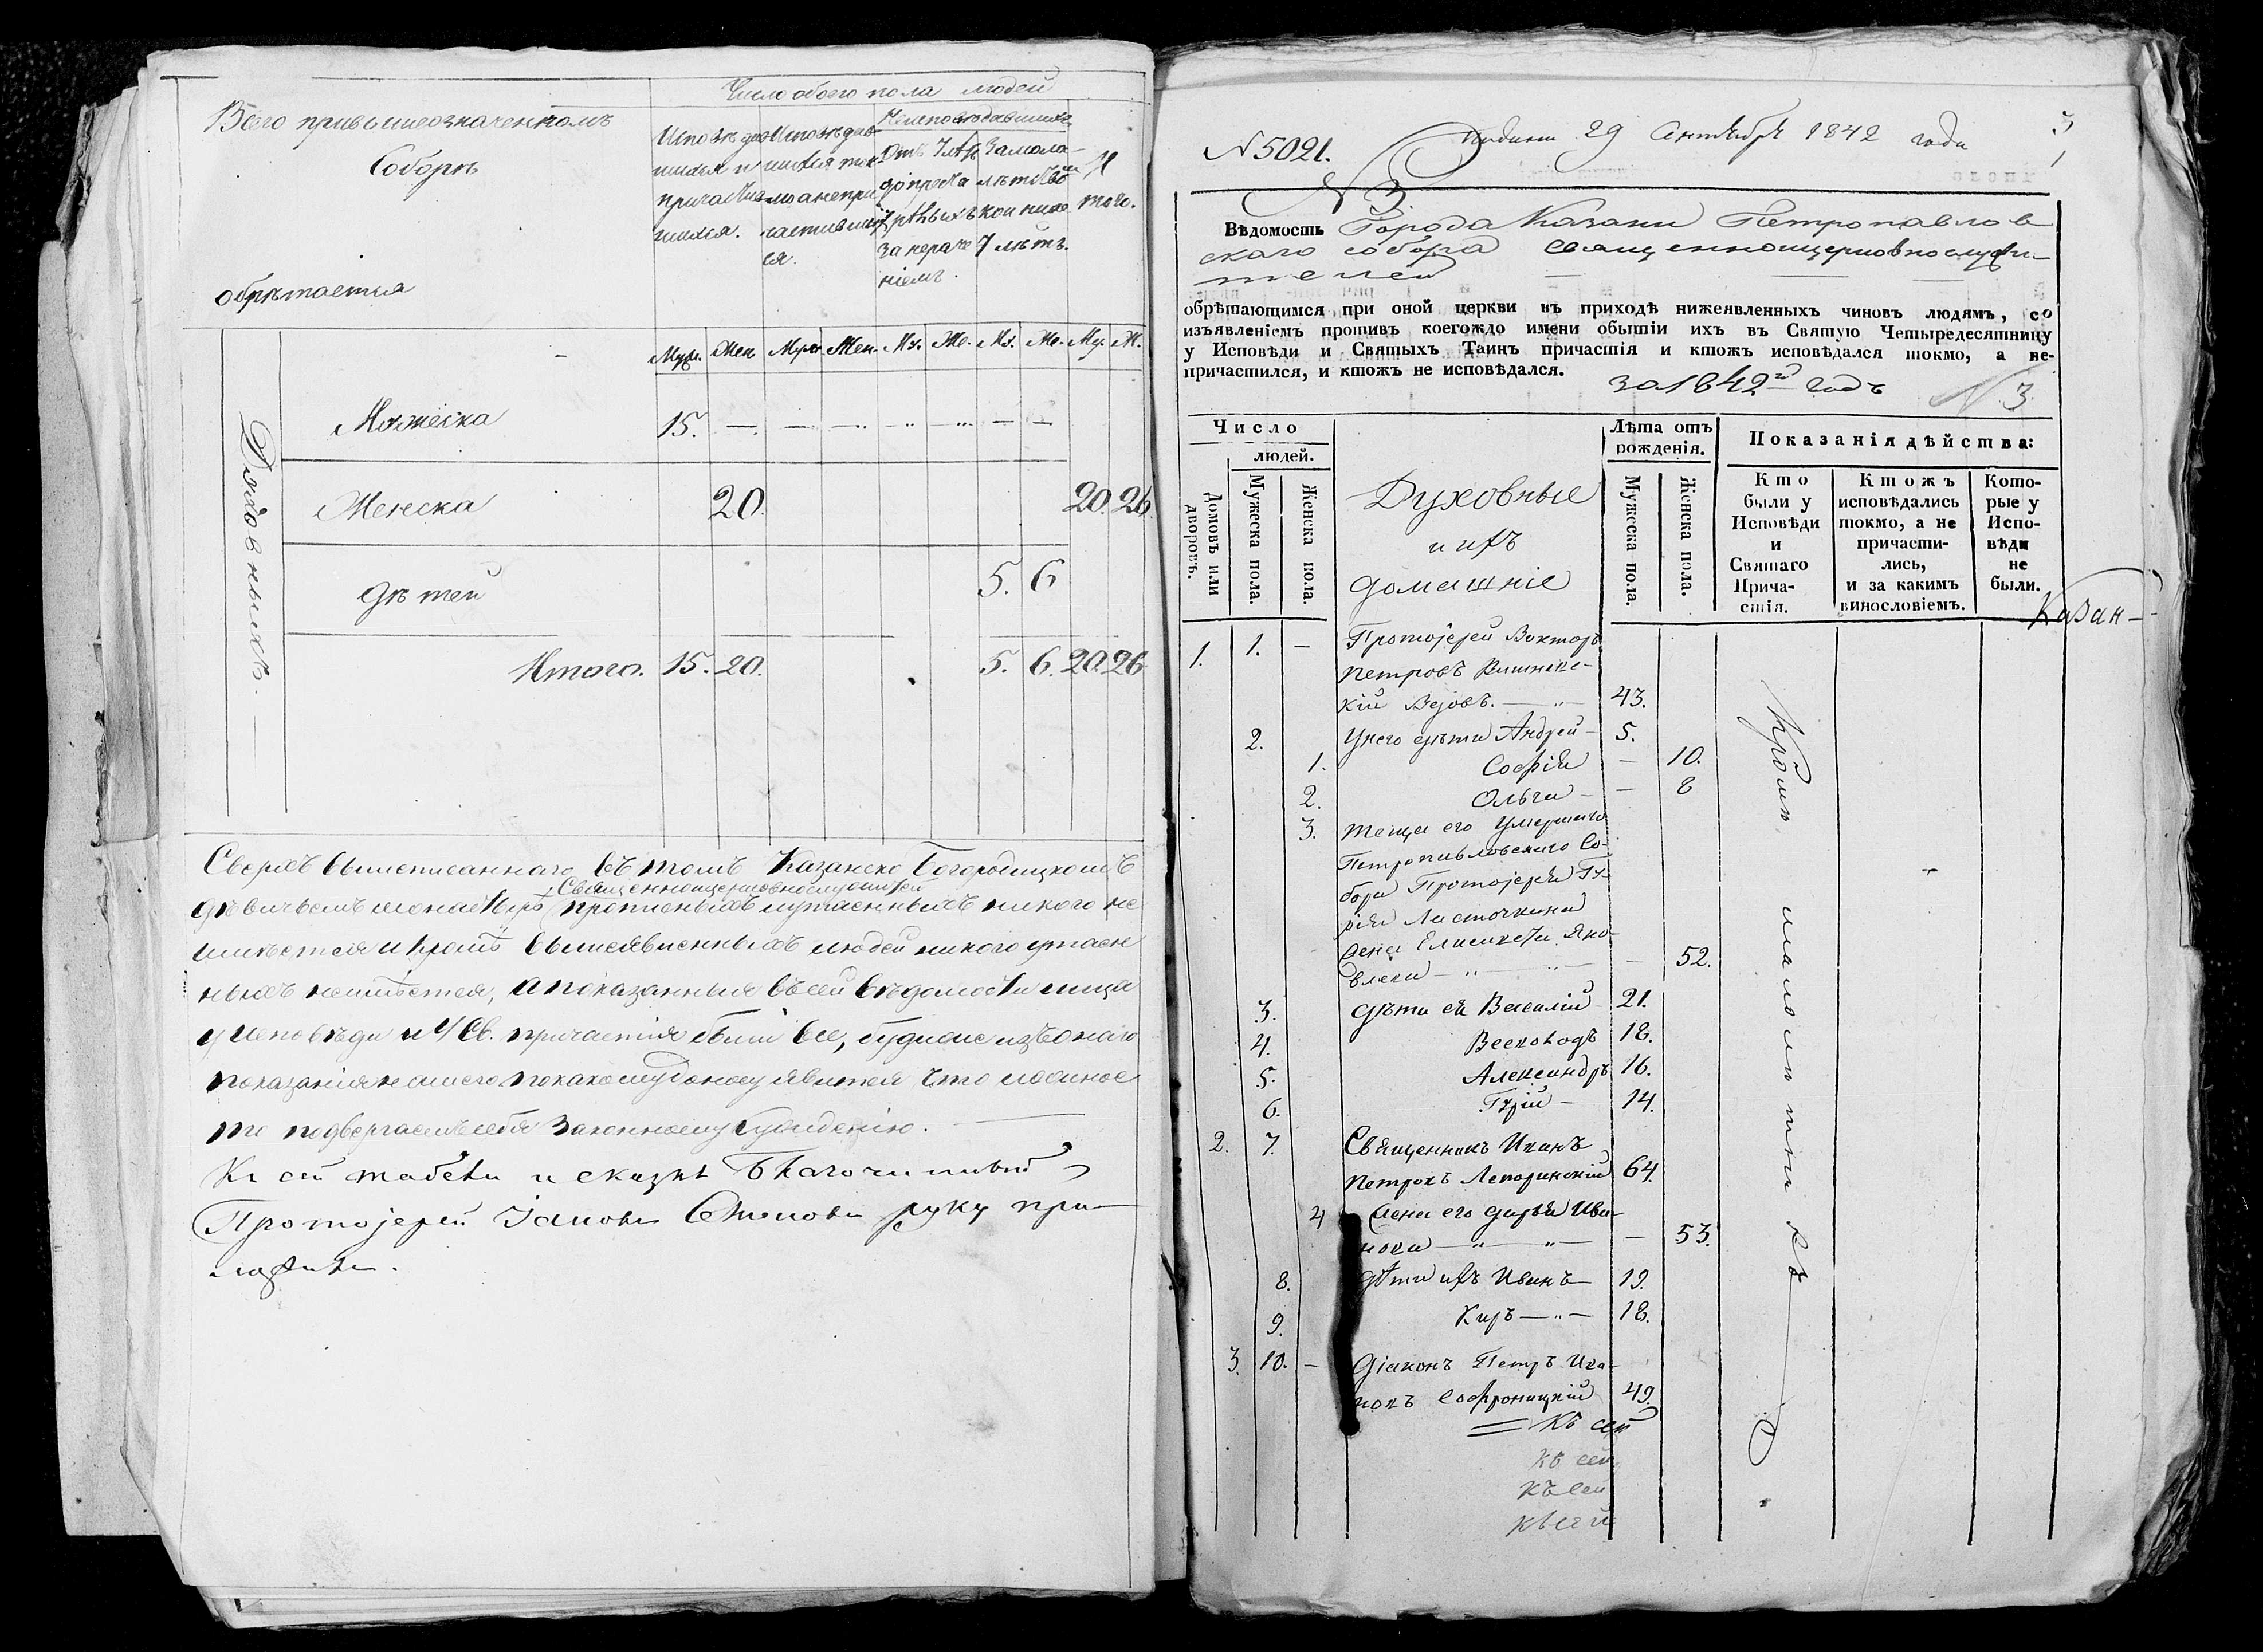 Всего при вышеозначенномъ
Соборѣ
обрѣтается
Число обоего пола людей
Исповѣдавшихся и причастившихся.
Исповѣдавшихся токмо а не причастившихся.
Неисповѣдавшихся
От 7 лѣтъ до престарѣлыхъ за нераченіемъ.
За малолѣтствомъ кои ниже 7 лѣтъ.
Итого.
Муж. Жен. Муж. Жен. Му. Же. Му. Же. Му. Ж.
Духовныхъ.
Мужеска 15. — — — — — — —
Женска 20. 20. 26.
дѣтей 5. 6
Итого. 15. 20. 5. 6. 20. 26
Сверхъ вышеписаннаго въ томъ Казанско Богородицкомъ
Священноцерковнослужители
дѣвичьемъ монастырѣ прописныхъ и утаенныхъ никого не
имѣется и кромѣ вышеявленныхъ людей никого утаен
ныхъ неимѣется, а показанныя въ сей вѣдомости лица
у исповѣди и у Св. причастія были все, буде же изъ онаго
показанія нашего по какому доносу явится что ложное
то подвергаемъ себя законному сужденію.
Къ сей табели и сказкѣ Благочинный
Протоіерей руку при
ложилъ.
N 5021.
Подана 29 Октября 1842 года
N 3
Вѣдомость Города Казани Петропавлов
скаго собора священноцерковнослужи-
телей
обрѣтающимся при оной церкви въ приходѣ нижеявленныхъ чиновъ людямъ, со
изъявленіемъ противъ коегождо имени обытіи ихъ въ Святую Четыредесятницу
у Исповѣди и Святыхъ Таинъ причастія и ктожъ исповѣдался токмо, а не-
причастился, и ктожъ не исповѣдался.
за 1842й годъ
N. 3.
Число
людей.
Домовъ или дворовъ.
Мужеска пола.
Женска пола.
Духовные
и ихъ
домашніе
Лѣта отъ
рожденія.
Мужеска пола.
Женска пола.
Показанія дѣйства:
Кто
были у
Исповѣди
и
Святаго
Прича-
стія.
Ктожъ
исповѣдались
токмо, а не
причасти-
лись,
и за какимъ
винословіемъ.
Кото-
рые у
Испо-
вѣди
не
были.
Казан-
1. 1. — Протоіерей Викторъ
Петровъ Вишневс-
кій Вдовъ. — 43.
2. У него дѣти Андрей — 5.
1. Софія — 10.
2. Ольга — — 8
3. Теща его умершаго
Петропавловскаго Со-
бора Протоіерея Гу-
рія Ласточкина
жена Елисавета Яко-
влева — — 52.
3. Дѣти ея Василій 21.
4. Всеволодъ 18.
5. Александръ 16.
6. Гурій — 14.
2. 7. Священникъ Иванъ
Петровъ Лепоринскій 64.
4 Жена его Дарья Ива-
нова — — 53.
8. Дѣти ихъ Иванъ — 19.
9. Киръ — 18.
3. 10. — Діаконъ Петръ Ива-
новъ Софроницкій 49.
Къ сей
Къ сей
Къ сей
Къ сей
Кромѣ малолѣтнихъ